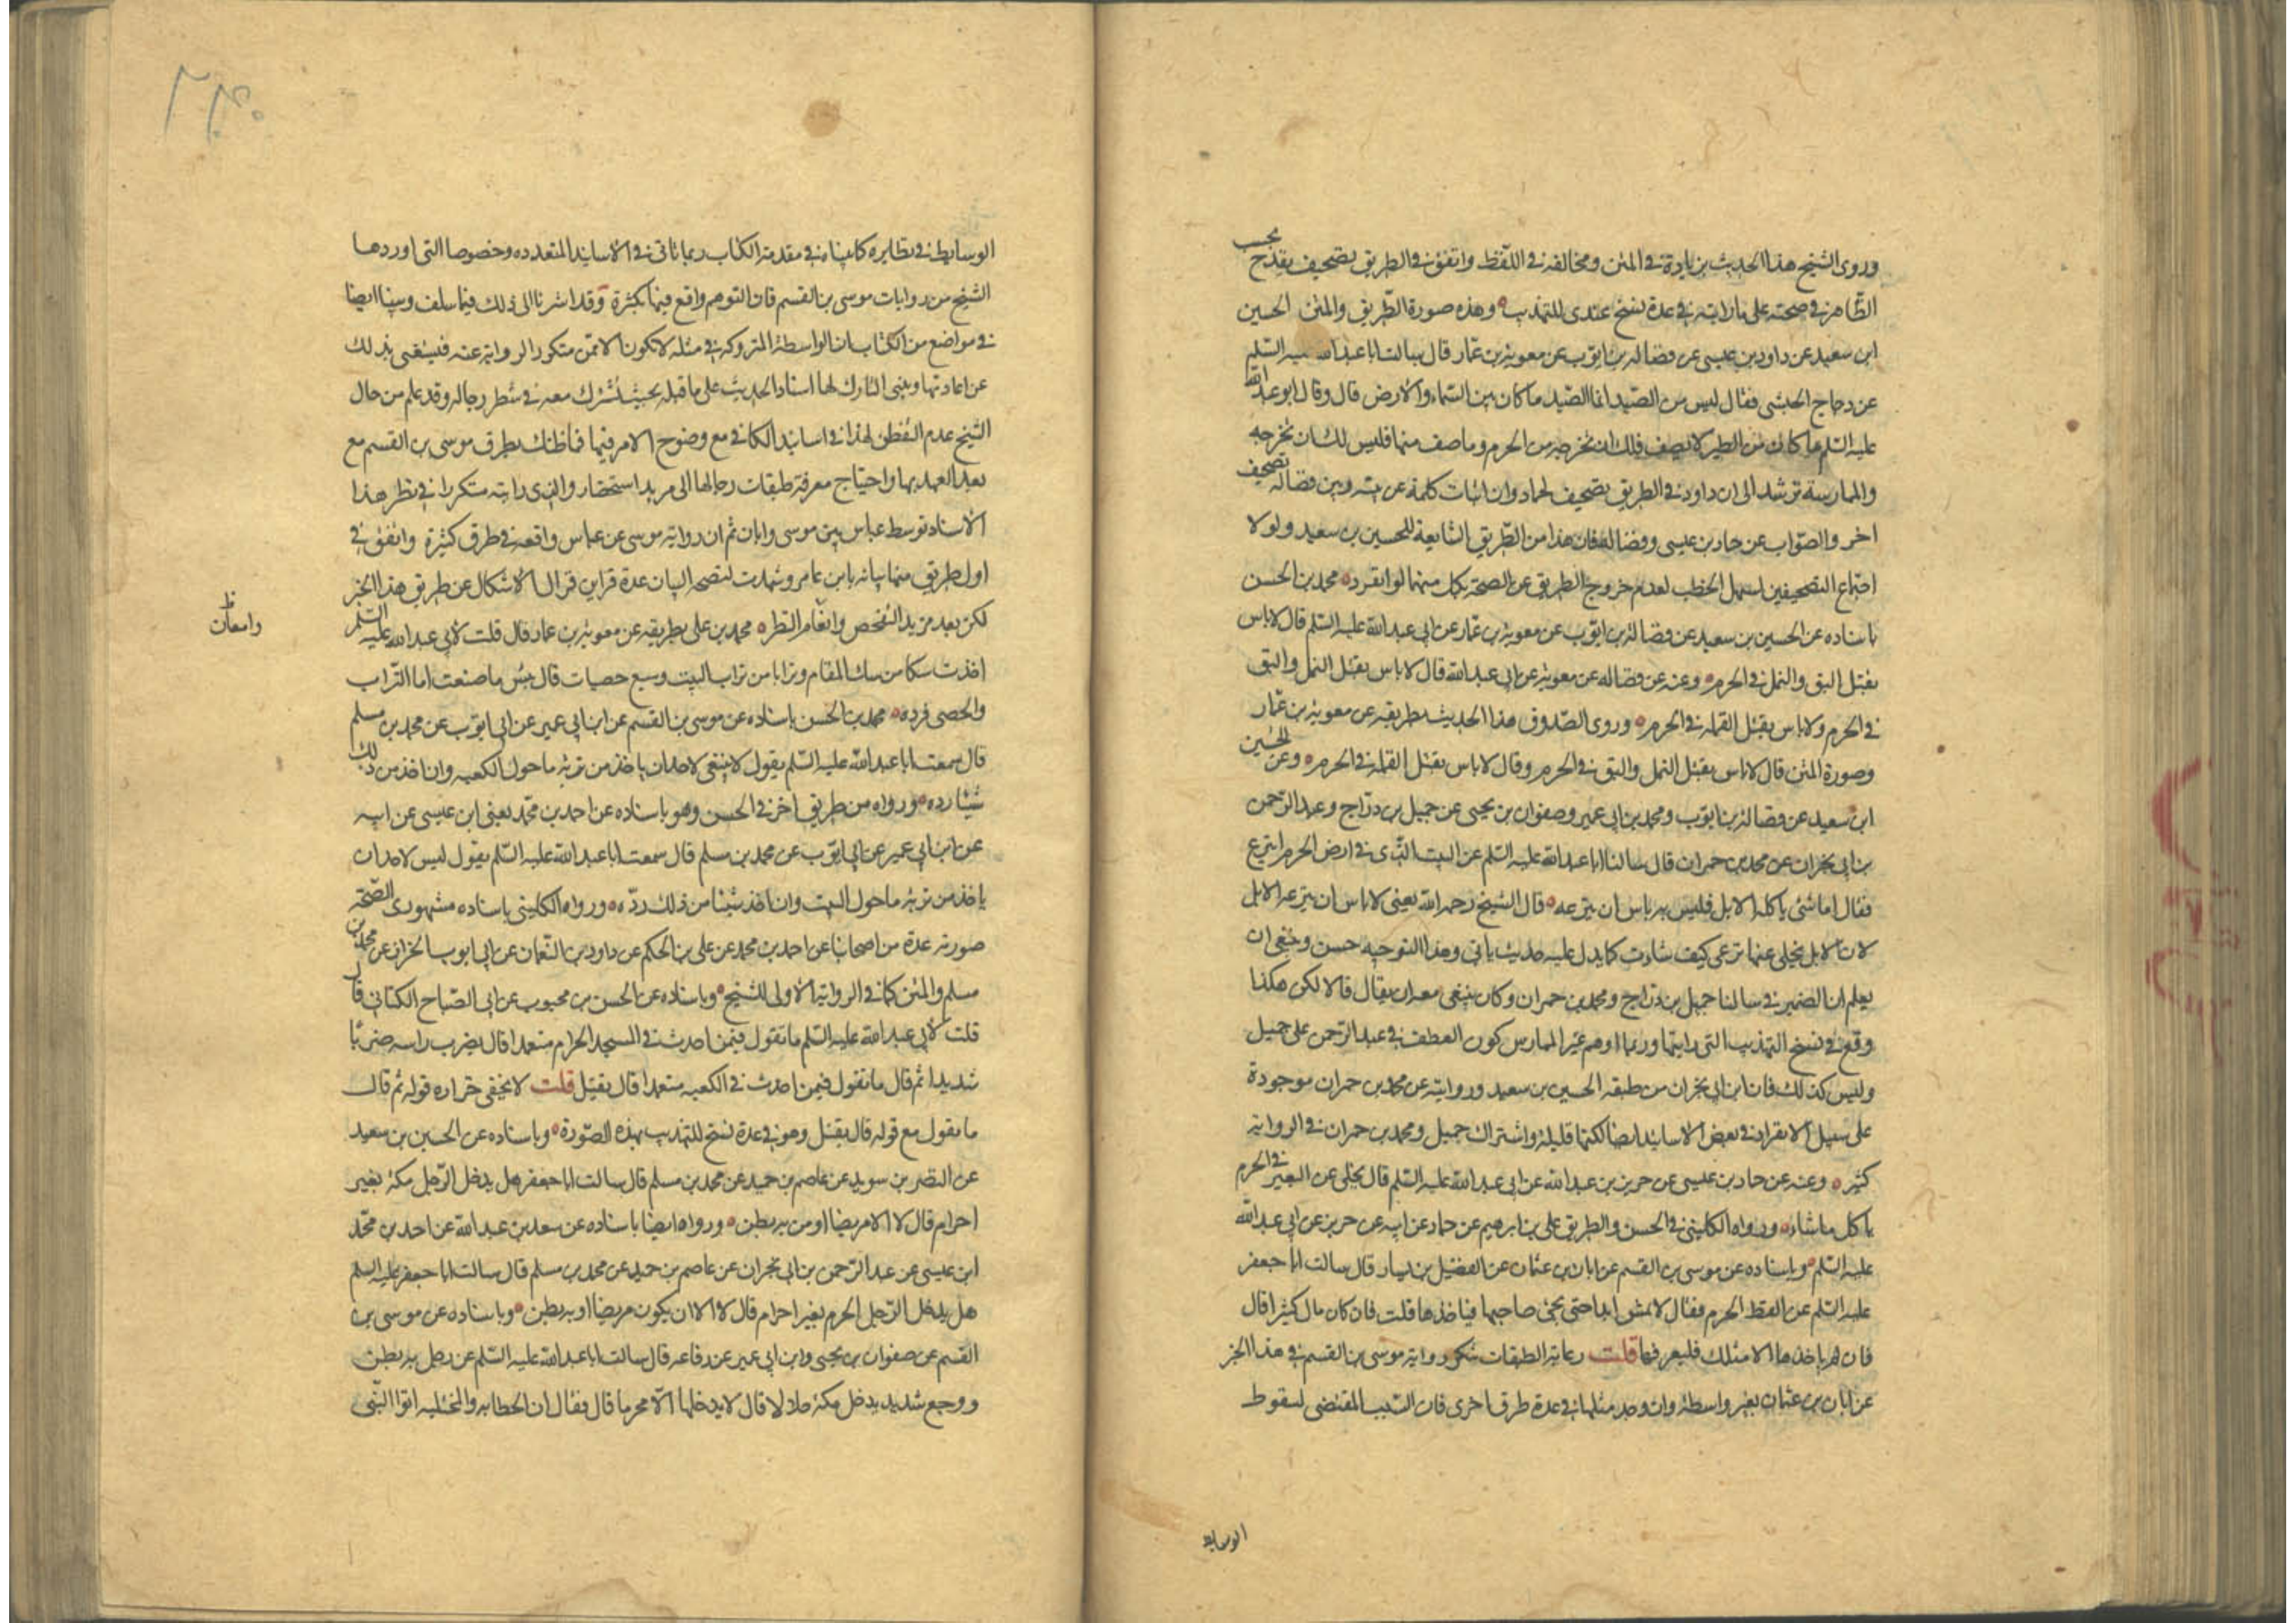 وروى الشيخ هذا الحديث بزيادة في المتن ومخالفة في اللفظ واتفق في الطريق تصحيف يقدح بحسب
الظاهر في صحته على ما رايته في عدة نسخ عندي للتهذيب وهذه صورة الطريق والمتن الحسين
ابن سعيد عن داود بن عيسى عن فضاله بن ايوب عن معوية بن عمار قال سالت ابا عبد الله عليه السلم
عن دجاج الحبشي فقال ليس من الصيد انما الصيد ما كان بين السماء والارض قال وقال ابو عبد الله
عليه السلم ما كان من الطير لا يصف فلك ان تخرجه من الحرم وما صف منها فليس لك ان تخرجه
والممارسة ترشد الى ان داود في الطريق تصحيف لحماد وان اثبات كلمة عن بينه وبين فضاله تصحيف
اخر والصواب عن حماد بن عيسى وفضاله فان هذا من الطريق الشايعة للحسين بن سعيد ولولا
اجتماع التصحيفين لسهل الخطب لعدم خروج الطريق عن الصحة بكل منهما لو انفرد محمد بن الحسن
باسناده عن الحسين بن سعيد عن فضالة بن ايوب عن معوية بن عمار عن ابي عبد الله عليه السلم قال لا باس
بقتل البق والنمل في الحرم وعنه عن فضاله عن معوية عن ابي عبد الله قال لا باس بقتل النمل والبق
في الحرم ولا باس بقتل القملة في الحرم وروى الصدوق هذا الحديث بطريقه عن معوية بن عمار
وصورة المتن قال لا باس بقتل النمل والبق في الحرم وقال لا باس بقتل القملة في الحرم وعن الحسين
ابن سعيد عن فضالة بن ايوب ومحمد بن ابي عمير وصفوان بن يحيى عن جميل بن دراج وعبد الرحمن
بن ابي نجران عن محمد بن حمران قال سالنا ابا عبد الله عليه السلم عن النبت الذي في ارض الحرم اينزع
فقال اما شئ ياكله الابل فليس به باس ان ينزعه قال الشيخ رحمه الله يعنى لا باس ان ينزعه الابل
لان الابل يخلى عنها ترعى كيف شاءت كما يدل عليه حديث ياتي وهذا التوجيه حسن وينبغي ان
يعلم ان الضمير في سالنا لجميل بن دراج ومحمد بن حمران وكان ينبغى معه ان يقال قالا لكن هكذا
وقع في نسخ التهذيب التي رايتها وربما اوهم غير الممارس كون العطف في عبد الرحمن على جميل
وليس كذلك فان ابن ابي نجران من طبقه الحسين بن سعيد وروايته عن محمد بن حمران موجودة
على سبيل الانفراد في بعض الاسانيد ايضا لكنها قليلة واشتراك جميل ومحمد بن حمران في الرواية
كثير وعنه عن حماد بن عيسى عن حريز بن عبد الله عن ابي عبد الله عليه السلم قال يخلى عن البعير في الحرم
ياكل ما شاء ورواه الكليني في الحسن والطريق علي بن ابرهيم عن حماد عن ابيه عن حريز عن ابي عبد الله
عليه السلم وباسناده عن موسى بن القسم عن ابان بن عثمان عن الفضيل بن يسار قال سالت ابا جعفر
عليه السلم عن لقطة الحرم فقال لا تمس ابدا حتى يجئ صاحبها فياخذها قلت فان كان مال كثير قال
فان لم ياخذها الا مثلك فليعرفها قلت رعاية الطبقات تنكر رواية موسى بن القسم في هذا الخبر
عن ابان بن عثمان بغير واسطة وان وجد مثلها في عدة طرق اخرى فان السبب المقتضى لسقوط
الوسايط
٢٣٠
الوسايط في نظايره كما بيناه في مقدمة الكتاب ربما تاتى في الاسانيد المتعدده وخصوصا التي اوردها
الشيخ من روايات موسى بن القسم فان التوهم واقع فيها بكثرة وقد اشرنا الى ذلك فيما سلف وبينا ايضا
في مواضع من الكتاب ان الواسطة المتروكة في مثله لا تكون الا ممن تتكرر الرواية عنه فيستغنى بذلك
عن اعادتها ويبنى التارك لها اسناد الحديث على ما قبله بحيث تشترك معه في شطر رجاله وقد علم من حال
الشيخ عدم التفطن لهذا في اسانيد الكافي مع وضوح الامر فيها فما ظنك بطرق موسى بن القسم مع
بعد العهد بها واحتياج معرفة طبقات رجالها الى مزيد استحضار والذي رايته متكررا في نظر هذا
الاسناد توسط عباس بين موسى وابان ثم ان رواية موسى عن عباس واقعة في طرق كثيرة واتفق في
اول طريق منها بيانه بابن عامر وشهدت لصحة البيان عدة قراين فزال الاشكال عن طريق هذا الخبر
لكن بعد مزيد التفحص وانعام النظر محمد بن علي بطريقه عن معوية بن عمار قال قلت لابي عبد الله عليه السلم
وامعان ظ
اخذت سكا من سك المقام وترابا من تراب البيت وسبع حصيات قال بئس ما صنعت اما التراب
والحصى فرده محمد بن الحسن باسناده عن موسى بن القسم عن ابن ابي عمير عن ابي ايوب عن محمد بن مسلم
قال سمعت ابا عبد الله عليه السلم يقول لا ينبغى لاحد ان ياخذ من تربة ما حول الكعبه وان اخذ من ذلك
شيئا رده ورواه من طريق اخر في الحسن وهو باسناده عن احمد بن محمد يعنى ابن عيسى عن ابيه
عن ابن ابي عمير عن ابي ايوب عن محمد بن مسلم قال سمعت ابا عبد الله عليه السلم يقول ليس لاحد ان
ياخذ من تربة ما حول البيت وان اخذ شيئا من ذلك رده ورواه الكليني باسناده مشهورى الصحة
صورته عدة من اصحابنا عن احمد بن محمد عن علي بن الحكم عن داود بن النعمان عن ابي ايوب الخزاز عن محمد بن
مسلم والمتن كما في الرواية الاولى للشيخ وباسناده عن الحسن بن محبوب عن ابي الصباح الكناني قال
قلت لابي عبد الله عليه السلم ما تقول فيمن احدث في المسجد الحرام متعمدا قال يضرب راسه ضربا
شديدا ثم قال ما تقول فيمن احدث في الكعبه متعمدا قال يقتل قلت لا يخفى حزازه قوله ثم قال
ما تقول مع قوله قال يقتل وهو في عدة نسخ للتهذيب بهذه الصورة وباسناده عن الحسين بن سعيد
عن النضر بن سويد عن عاصم بن حميد عن محمد بن مسلم قال سالت ابا جعفر هل يدخل الرجل مكة بغير
احرام قال لا الا مريضا او من به بطن ورواه ايضا باسناده عن سعد بن عبد الله عن احمد بن محمد
ابن عيسى عن عبد الرحمن بن ابي نجران عن عاصم بن حميد عن محمد بن مسلم قال سالت ابا جعفر عليه السلم
هل يدخل الرجل الحرم بغير احرام قال لا الا ان يكون مريضا او به بطن وباسناده عن موسى بن
القسم عن صفوان بن يحيى وابن ابي عمير عن رفاعه قال سالت ابا عبد الله عليه السلم عن رجل به بطن
ووجع شديد يدخل مكة حلالا قال لا يدخلها الا محرما قال فقال ان الحطابه والمختلية اتوا النبي